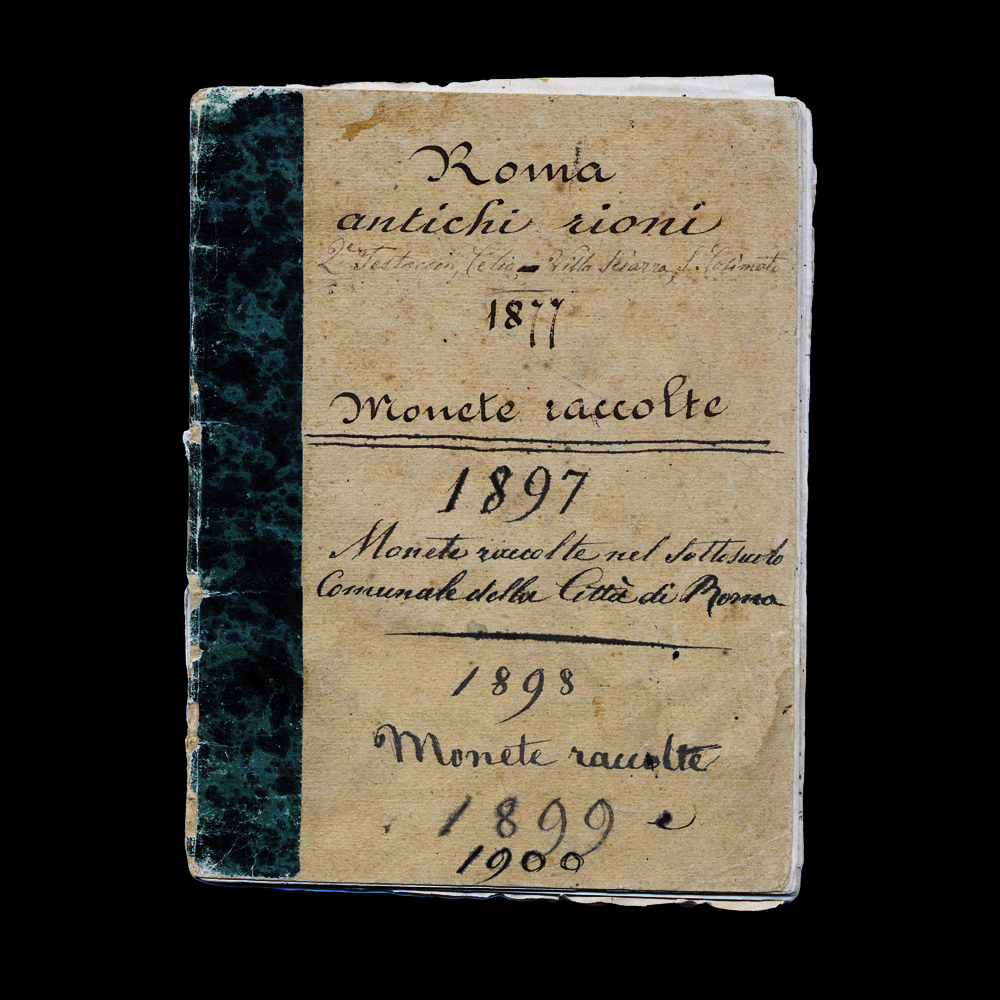 Roma
antichi rioni
Testaccio, Celio, - Villa Sciarra, S. Cosimato
1877
Monete raccolte
1897
Monete raccolte nel Sottosuolo
Comunale della Città di Roma
1898
Monete raccolte
1899 e
1900